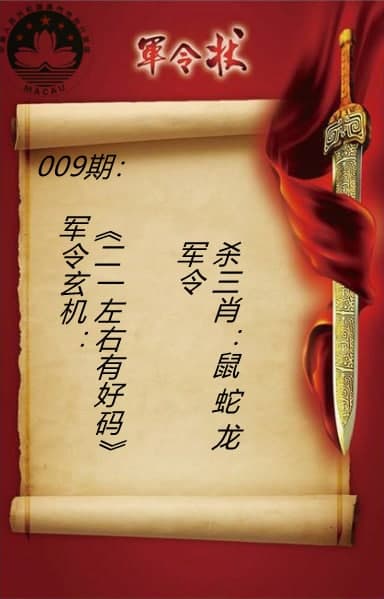 MACAU
軍令狀
009期：
军令玄机：
《二一左右有好码》
军令
杀三肖：鼠蛇龙